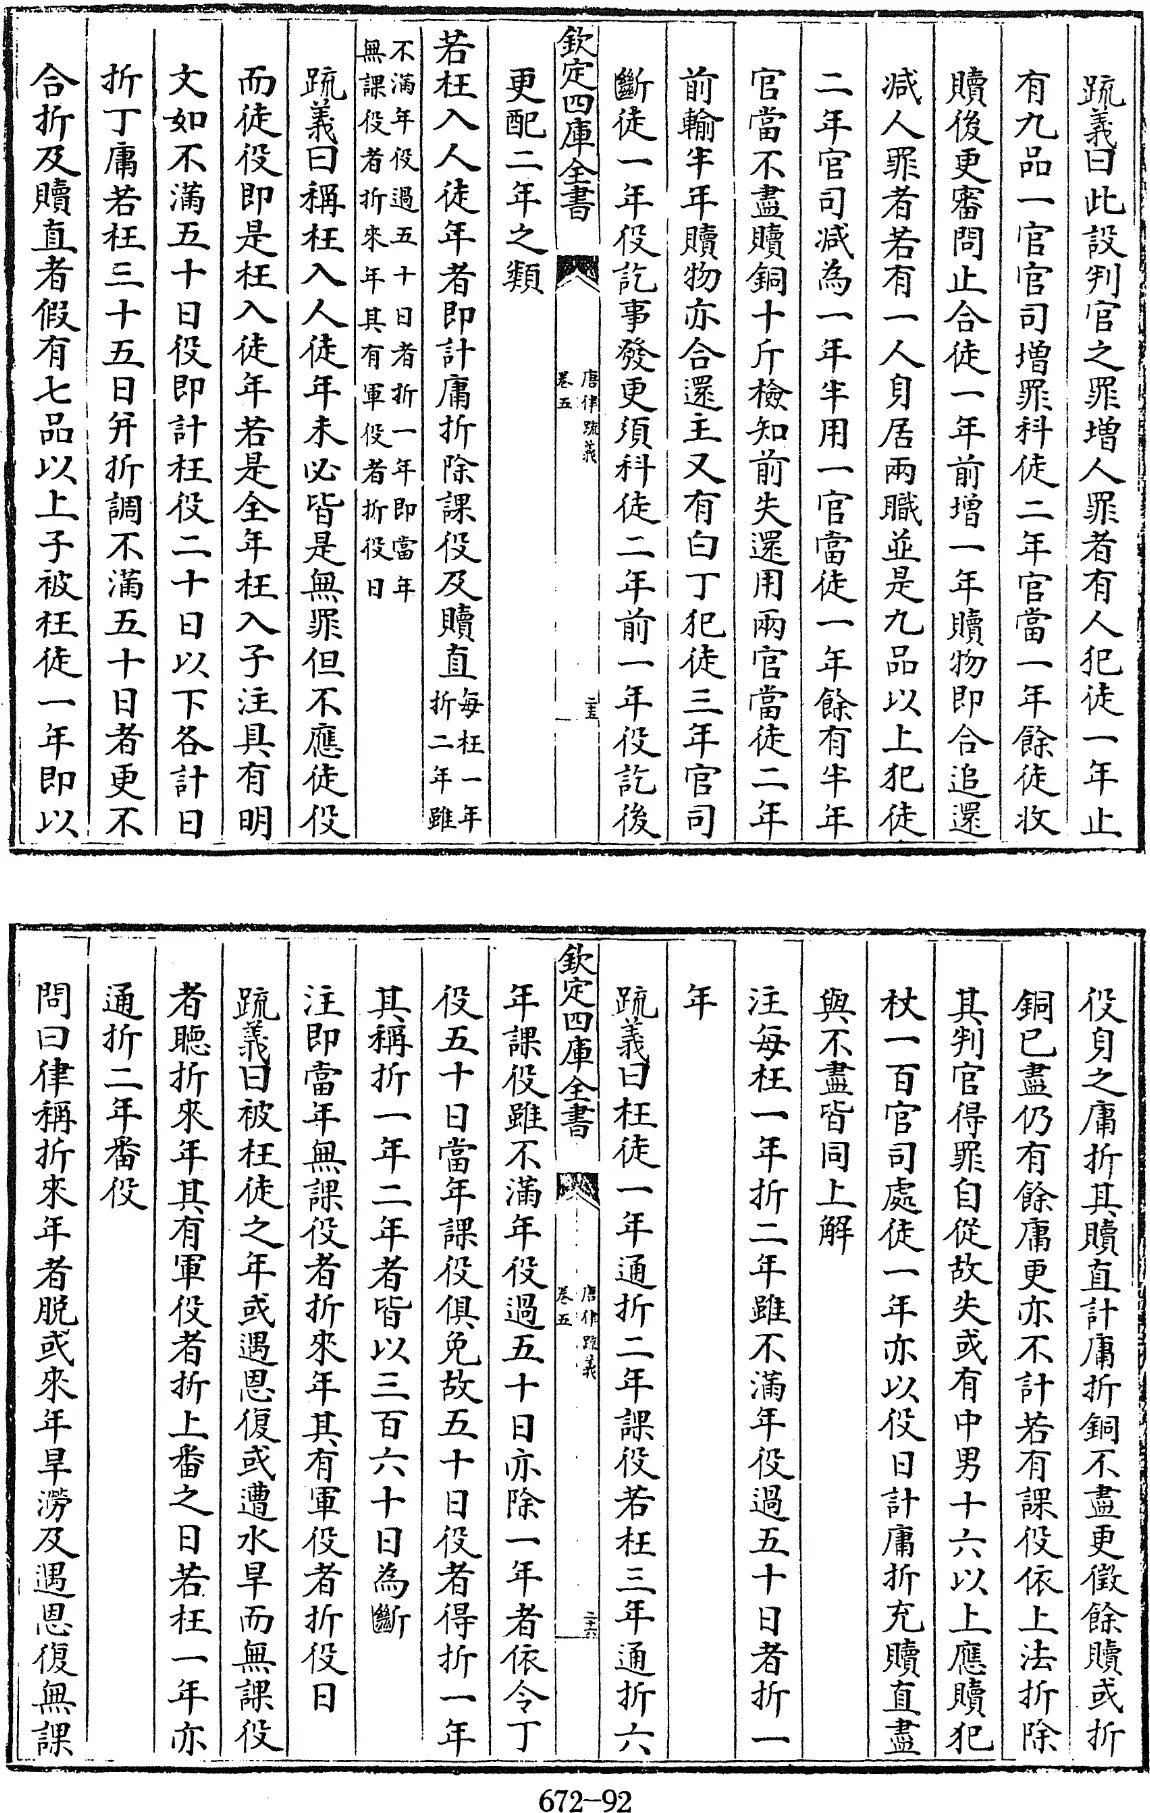 疏義曰此設判官之罪增人罪者有人犯徒一年止
有九品一官官司增罪科徒二年官當一年餘徒收
贖後更審問止合徒一年前增一年贖物即合追還
减人罪者若有一人身居兩職並是九品以上犯徒
二年官司减為一年半用一官當徒一年餘有半年
官當不盡贖銅十斤檢知前失還用兩官當徒二年
前輸半年贖物亦合還主又有白丁犯徒三年官司
斷徒一年役訖事發更須科徒二年前一年役訖後
欽定四庫全書
唐律疏義
卷五
二十五
更配二年之類
若枉入人徒年者即計庸折除課役及贖直每枉一年
折二年雖
不滿年役過五十日者折一年即當年
無課役者折來年其有軍役者折役日
疏義曰稱枉入人徒年未必皆是無罪但不應徒役
而徒役即是枉入徒年若是全年枉入子注具有明
文如不滿五十日役即計枉役二十日以下各計日
折丁庸若枉三十五日并折調不滿五十日者更不
合折及贖直者假有七品以上子被枉徒一年即以
役身之庸折其贖直計庸折銅不盡更徵餘贖或折
銅已盡仍有餘庸更亦不計若有課役依上法折除
其判官得罪自從故失或有中男十六以上應贖犯
杖一百官司處徒一年亦以役日計庸折充贖直盡
與不盡皆同上解
注每枉一年折二年雖不滿年役過五十日者折一
年
疏義曰枉徒一年通折二年課役若枉三年通折六
欽定四庫全書
唐律疏義
卷五
二十六
年課役雖不滿年役過五十日亦除一年者依令丁
役五十日當年課役俱免故五十日役者得折一年
其稱折一年二年者皆以三百六十日為斷
注即當年無課役者折來年其有軍役者折役日
疏義曰被枉徒之年或遇恩復或遭水旱而無課役
者聽折來年其有軍役者折上番之日若枉一年亦
通折二年番役
問曰律稱折來年者脱或來年旱澇及遇恩復無課
672-92